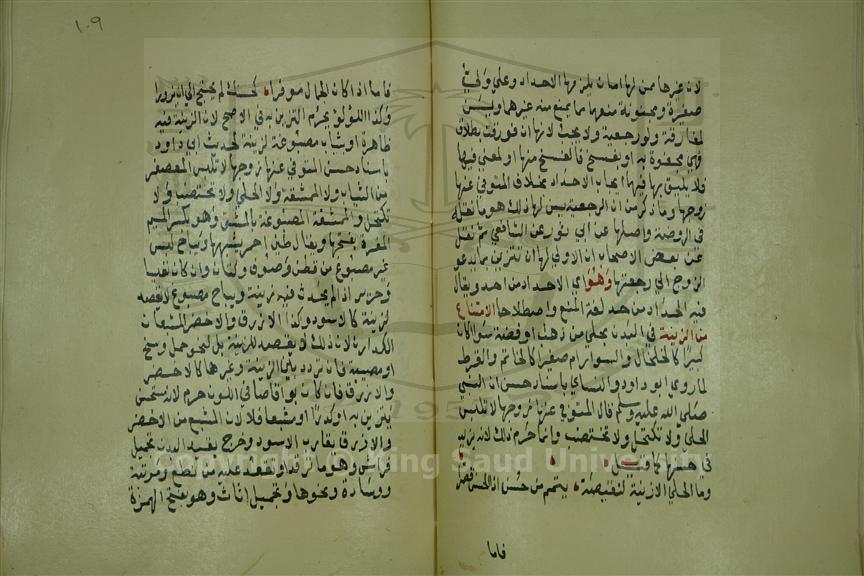 لان غيرها ممن لها امان يلزمها الاحداد وعلي ولي
صغيرة ومجنونة منعهما مما يمنع منه غيرهما وليس
لمفارقة ولو رجعية ولا يجب لانها ان فورقت بطلاق
فهي مجفوة به او بفسخ فالفسخ منها او لمعني فيها
فلا يليق بها فيهما ايجاب الاحداد بخلاف المتوفي عنها
زوجها وما ذكر من ان الرجعية يسن لها ذلك هو ما نقله
في الروضة واصلها عن ابي ثور عن الشافعي ثم نقل
عن بعض الاصحاب ان الاولي لها ان تتزين بما يدعو
الزوج الي رجعتها وهو اي الاحداد من احد ويقال
فيه الحداد من حد لغة المنع واصطلاحا الامتناع
من الزينة في البدن بحلي من ذهب او فضة سوا كان
كبيرا كالخلخال والسوار ام صغيرا كالخاتم والقرط
لما روي ابو داود والنساي باسناد حسن ان النبي
صلي الله عليه وسلم قال المتوفي عنها زوجها لا تلبس
الحلي ولا تكتحل ولا تختضب وانما حرم ذلك لانه يزيد
في حسنها كما قيل
وما الحلي الا زينة لنقيصة يتمم من حسن اذا الحسن قصر
فاما
١٠٩
فاما اذا كان الجمال موفرا كحسنك لم يحتج الي ان يزورا
وكذا اللؤلؤ يحرم التزين به في الاصح لان الزينة فيه
ظاهرة او ثياب مصبوغة لزينة لحديث ابي داود
باسناد حسن المتوفي عنها زوجها لا تلبس المعصفر
من الثياب ولا الممشقة ولا الحلي ولا تختضب ولا
تكتحل والممشقة المصبوغة بالمشق وهو بكسر الميم
المغرة بفتحها ويقال طين احمر يشبهها ويباح لبس
غير مصبوغ من قطن وصوف وكتان وان كان نفيسا
وحرير اذ لم يحدث فيه زينة ويباح مصبوغ لا يقصد
لزينة كالاسود وكذا الازرق والاخضر المشبعان
الكدران لان ذلك لا يقصد للزينة بل لنحو حمل وسخ
او مصيبة فان تردد بين الزينة وغيرها كالاخضر
والازرق فان كان براقا صافي اللون حرم لانه مستحسن
يتزين به او كدرا او مشبعا فلا لان المشبع من الاخضر
والازرق يقارب الاسود وخرج بقيد البدن تجميل
فراش وهو ما ترقد او تقعد عليه من نطع ومرتبة
ووسادة ونحوها وتجميل اثاث وهو بفتح الهمزة
Copyright © King Saud University